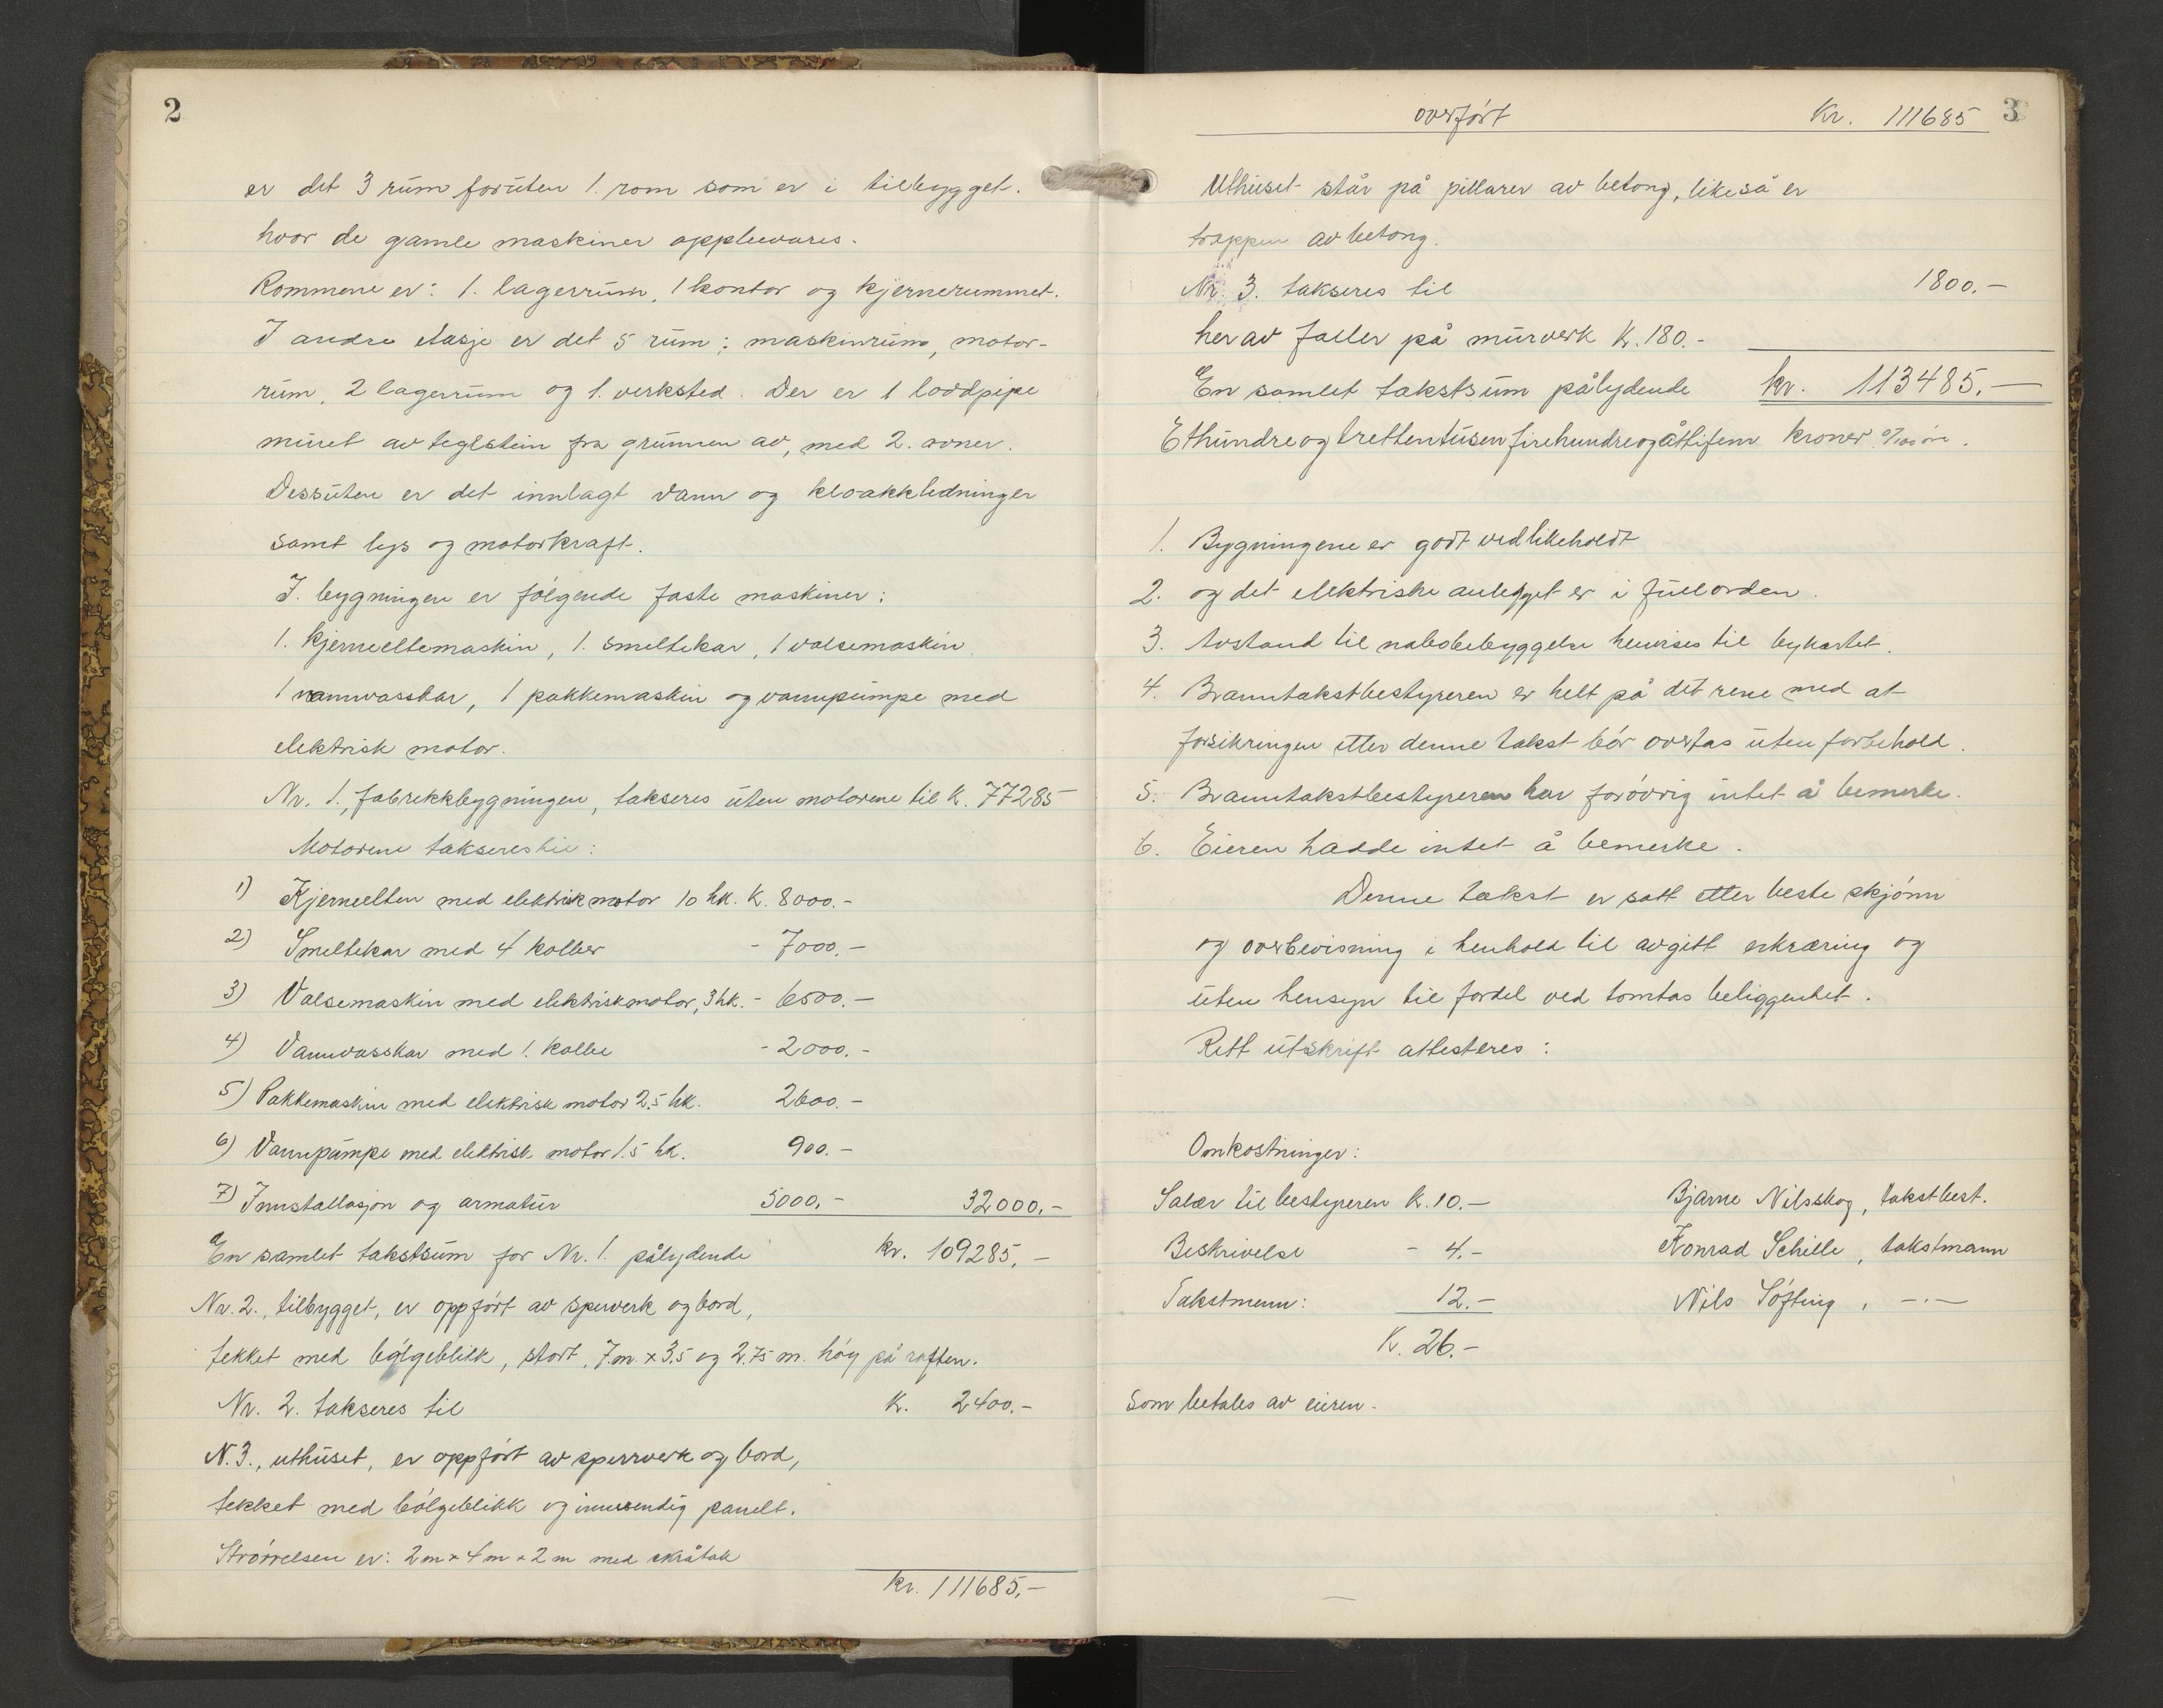 2
er det 3 rum foruten 1. rom som er i tilbygget.
hvor de gamle maskiner oppbevares.
Rommene er: 1. lagerrum, 1 kontor og kjernerummet.
I andre etasje er det 5 rum: maskinrum, motor-
rum, 2 lagerrum og 1. verksted. Der er 1 loddpipe
muret av teglstein fra grunnen av, med 2. ovner.
Dessuten er det innlagt vann og kloakkledninger
samt lys og motorkraft.
I. bygningen er følgende faste maskiner:
1. kjerneeltemaskin, 1. smeltekar, 1 valsemaskin,
1 vannvasskar, 1 pakkemaskin og vannpumpe med
elektrisk motor.
Nr. 1., fabrikkbygningen, takseres uten motorene til K. 77285
Motorene takseres til:
1) Kjerneelten med elektrisk motor 10 hk. K. 8000.-
2) Smeltekar med 4 kolber - 7000.-
3) Valsemaskin med elektriskmotor, 3 hk. - 6500.-
4) Vannvasskar med 1. kolbe - 2000.-
5) Pakkemaskin med elektrisk motor 2.5 hk. 2600.-
6) Vannpumpe med elektrisk motor 1.5 hk. 900.-
7) Innstallasjon og armatur 5000.- 32000.-
En samlet takstsum for Nr. 1. pålydende kr. 109285.-
Nr. 2., tilbygget, er oppført av sperverk og bord,
tekket med bølgeblikk, stort, 7.m. x 3.5 og 2.75 m. høy på raften.
Nr. 2. takseres til K. 2400.-
N. 3., uthuset, er oppført av sperrverk og bord,
tekket med bølgeblikk og innvendig panelt.
Størrelsen er: 2m x 4m x 2m med skråtak
kr. 111685.-
overført Kr. 111685 3
Uthuset står på pillarer av betong, likeså er
trappen av betong.
Nr. 3. takseres til 1800.-
herav faller på murverk K. 180.-
En samlet takstsum pålydende kr. 113485.-
Ethundreogtrettentusenfirehundreogåttifem kroner 0/100 øre.
1. Bygningene er godt vedlikeholdt
2. og det elektriske anlegget er i full orden.
3. Avstand til nabobebyggelse henvises til bykartet.
4. Branntakstbestyreren er helt på det rene med at
forsikringen etter denne takst bør overtas uten forbehold.
5. Branntakstbestyreren har forøvrig intet å bemerke.
6. Eieren hadde intet å bemerke.
Denne takst er satt etter beste skjønn
og overbevisning i henhold til avgitt erkræring og
uten hensyn til fordel ved tomtas beliggenhet.
Rett utskrift attesteres:
Omkostninger:
Salær til bestyreren K. 10.- Bjarne Nilsskog, takstbest.
Beskrivelse - 4.- Konrad Schille, takstmann
Takstmenn: 12.- Nils Søfting, -.-
K. 26.-
Som betales av eieren.